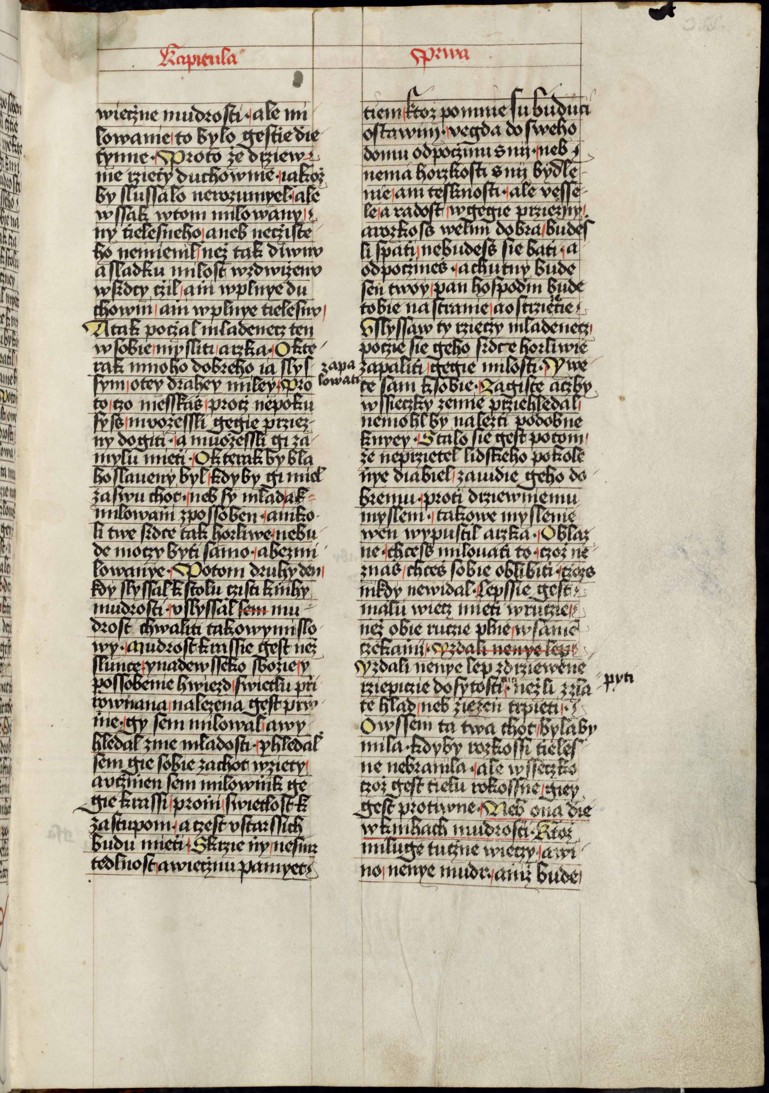 Kapitula
Prwa
wieczne mudrosti · ale mi
lowanie to bylo gestie die
tynne · Proto ze drziew
nie rzieczy duchownie · iakoz
by slussalo nerozumyel · ale
wssak w tom milowany
ny tielesneho aneb necziste
ho nemienil nez tak diwnu
a sladku milost wzdwizenu
w srdcy czil · ani w plnye du
chowni ani w plnye tielesnu
A tak poczal mladenecz ten
w sobie mysliti a rzka · O kte
rak mnoho dobreho ia slys
sym o tey drahey miley · Pro
to czo messkas procz nepoku
sys mozessli gegie prziez
ny dogiti · a muozessli gi za
mylu mieti · O kterak by bla
hoslaueny byl kdyby gi miel
za swu chot · neb sy mlad a k
milowani zpossoben · a niko
li twe srdce tak horliwe nebu
de moczy byti samo · a bez mi
lowanye · Potom druhy den
kdy slyssal k stolu czisti knihy
mudrosti · vslyssal sem mu
drost chwaliti takowymi slo
wy · Mudrost krassie gest nez
slunce y nade wsseko sbozie y
possobenie hwiezd swietlu przi
rownana nalezena gest prw
nie · gy sem milowal a wy
hledal z me mladosti · y hledal
sem gie sobie za chot wzieti
a vczinen sem milownik ge
gie krassi · pro ni swietlost k
zastupom a czest v starssich
budu mieti · Skrzie ny nesmr
tedlnost a wiecznu pamyet
zapa
lowati
tiem ktoz po mnie su buduci
ostawim · vegda do sweho
domu odpoczinu s nij · neb
nema horzkosti s nij bydle
nie ani tesknosti · ale vesse
le a radost w gegie przyezny
a rozkoss welmi dobra budes
li spati nebudess sie bati · a
odpoczines · a chutny bude
sen twoy pan hospodin bude
tobie na stranie a ostrzieze
Vslyssaw ty rzieczy mladenecz
poczie sie geho srdce horliwie
zapaliti gegie milosti · Y we
te sam k sobie · Zagiste acz by
wssieczky zemie prziehledal
nemohl by nalezti podobne
k nyey · Stalo sie gest potom
ze neprzietel lidskeho pokole
nye diabel zawidie geho do
bremu · proti drziewniemu
mysleni · takowe myslenie
w en wypustil a rzka · O blaz
ne · chcess milouati to czoz ne
znas chces sobie oblibiti czozs
nikdy newidal · Lepssie gest
malu wiecz mieti w rucie
nez obie rucie plne w samie
czekani · Wzdali nenye lep
Wzdali nenye lep zdrziewene
rziepiczie do sytosti nezli zzia
te hlad neb ziezen trpieti
Owssem ta twa chot byla by
mila · kdyby rozkossi tieles
ne nebranila · ale wsseczko
czoz gest tielu rokossne giey
gest protiwne · Neb ona die
w knihach mudrosti · Ktoz
miluge tuczne wieczy a wi
no nenye mudr · aniz bude
pyti